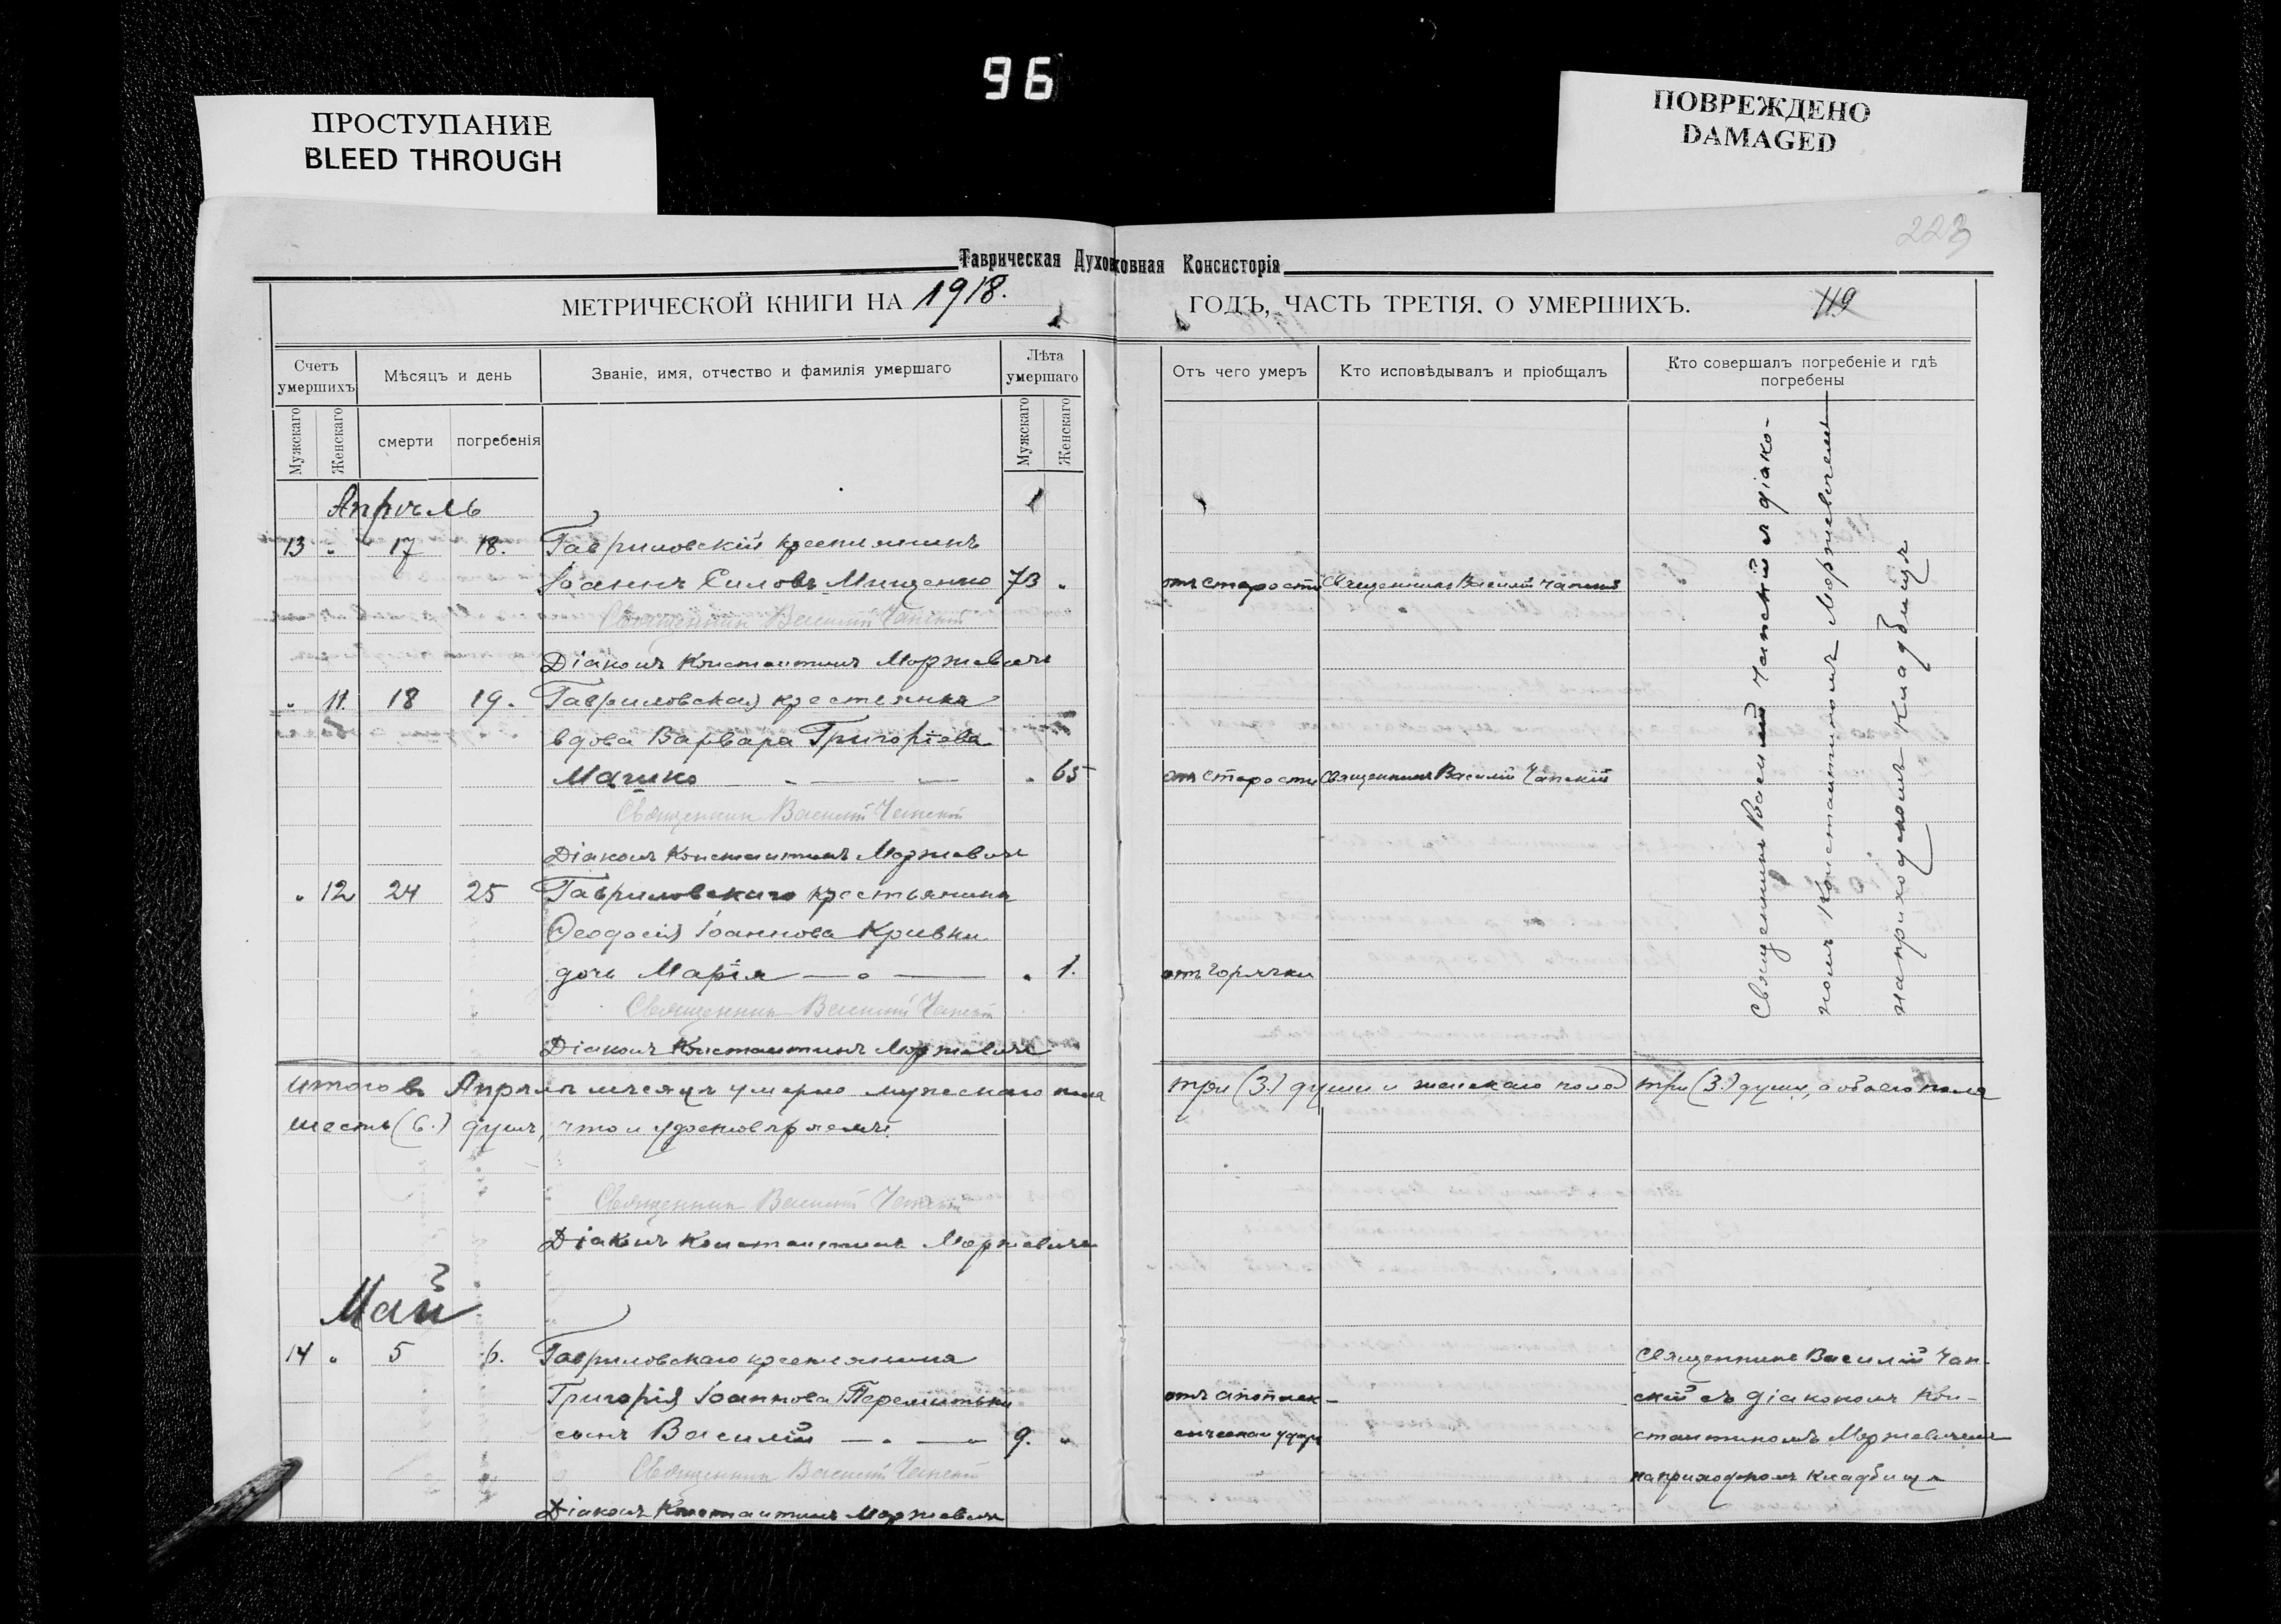 96
ПРОСТУПАНИЕ
BLEED THROUGH
ПОВРЕЖДЕНО
DAMAGED
223
Таврическая Духовная Консисторія
МЕТРИЧЕСКОЙ КНИГИ НА 1918.
ГОДЪ, ЧАСТЬ ТРЕТІЯ, О УМЕРШИХЪ.
119
Счетъ умершихъ
Мужскаго
Женскаго
Мѣсяцъ и день
смерти
погребенія
Званіе, имя, отчество и фамилія умершаго
Лѣта умершаго
Мужскаго
Женскаго
Отъ чего умеръ
Кто исповѣдывалъ и пріобщалъ
Кто совершалъ погребеніе и гдѣ погребены
Апрѣль
13 " 17 18. Гавриловскій крестьянинъ
Іоаннъ Силовъ Мищенко 73 " отъ старости Священникъ Василій Чапскій
Священникъ Василій Чапскій
Діаконъ Константинъ Моржевичъ
" 11. 18 19. Гавриловская крестьянка
вдова Варвара Григоріева
" 65 отъ старости Священникъ Василій Чапскій
Священникъ Василій Чапскій
Діаконъ Константинъ Моржевичъ
" 12 24 25 Гавриловскаго крестьянина
Ѳеодосія Іоаннова Кривки
дочь Марія " 1. отъ горячки
Священникъ Василій Чапскій
Діаконъ Константинъ Моржевичъ
Священникъ Василій Чапскій и діако-
номъ Константиномъ Моржевичемъ
на приходскомъ кладбищѣ
Итого въ Апрѣлѣ мѣсяцѣ умерло мужескаго пола три (3.) души и женскаго пола три (3.) души, а обоего пола
шесть (6.) душъ, что и удостовѣряемъ.
Священникъ Василій Чапскій
Діаконъ Константинъ Моржевичъ
Май
14 " 5 6. Гавриловскаго крестьянина Священникъ Василій Чап-
Григорія Іоаннова отъ апоплек- скій съ діакономъ Кон-
сынъ Василій 9. " сическаго удара стантиномъ Моржевичемъ
Священникъ Василій Чапскій на приходскомъ кладбищѣ
Діаконъ Константинъ Моржевичъ